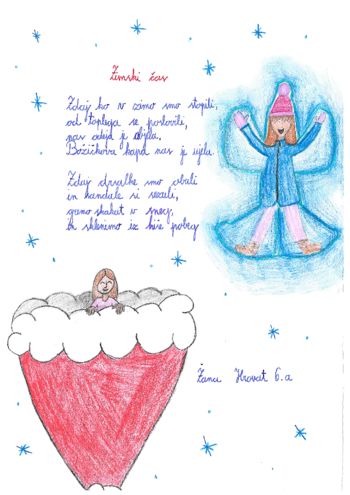 Zimski čas
Zdaj ko v zimo smo stopili,
od toplega se poslovili,
nas odeja je objela.
Božičkova kapa nas je ujela.
Zdaj drsalke smo obuli
in sandale si sezuli,
gremo skakat v sneg,
in iz hiše pobeg
Žana Hrovat 6.a